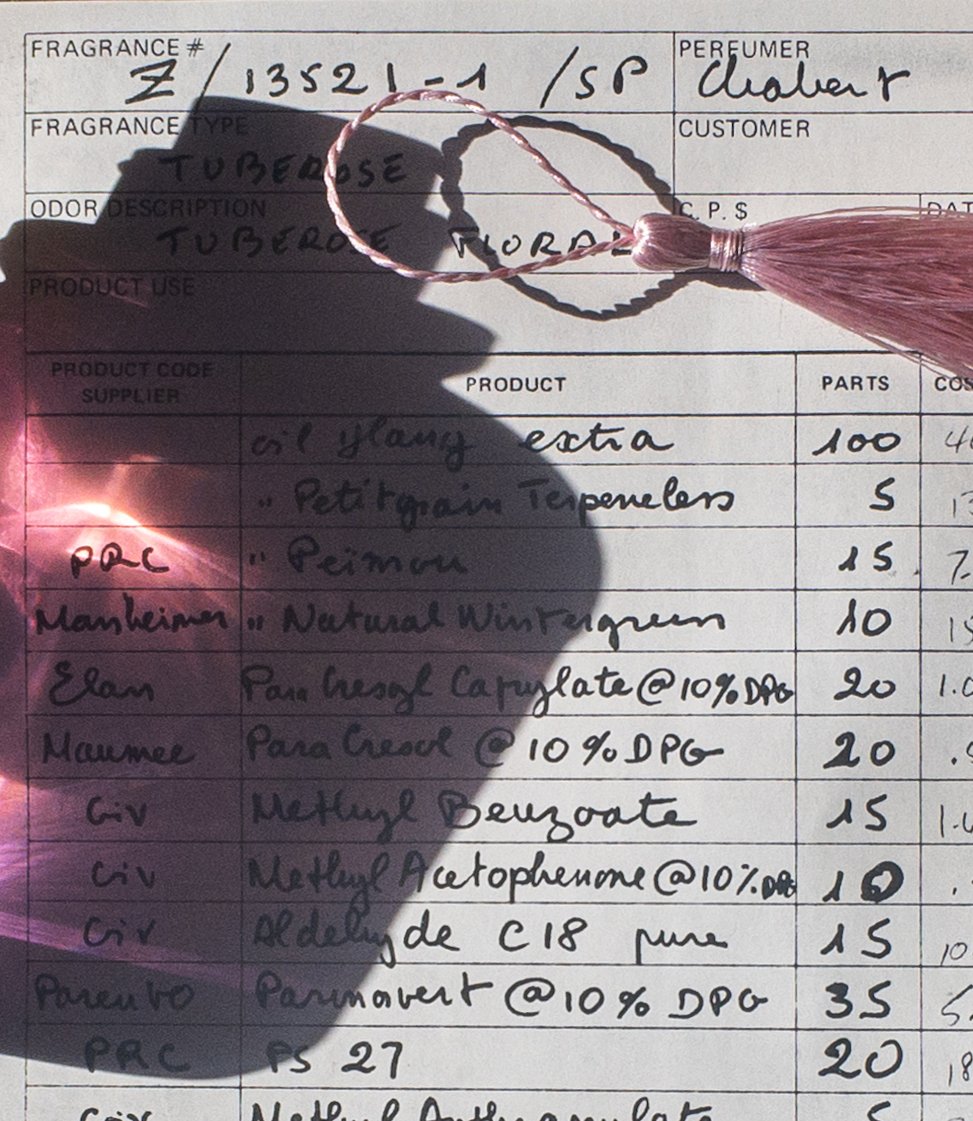 FRAGRANCE # PERFUMER
Z/13521-1 /SP Chabert
FRAGRANCE TYPE CUSTOMER
TUBEROSE
ODOR DESCRIPTION C.P.$ DAT
TUBEROSE FLORAL
PRODUCT USE
PRODUCT CODE SUPPLIER PRODUCT PARTS COS
oil ylang extra 100
" Petitgrain Terpeneless 5
PRC " Peimou 15
Manheimer " Natural Wintergreen 10
Elan Para Cresyl Caprylate @ 10% DPG 20 1.0
Maumee Para Cresol @ 10% DPG 20
Giv Methyl Benzoate 15
Giv Methyl Acetophenone @ 10% DPG 10
Giv Aldehyde C18 pure 15 10
Parento Parmavert @ 10% DPG 35
PRC PS 27 20 18
Giv Methyl Anthranilate 5